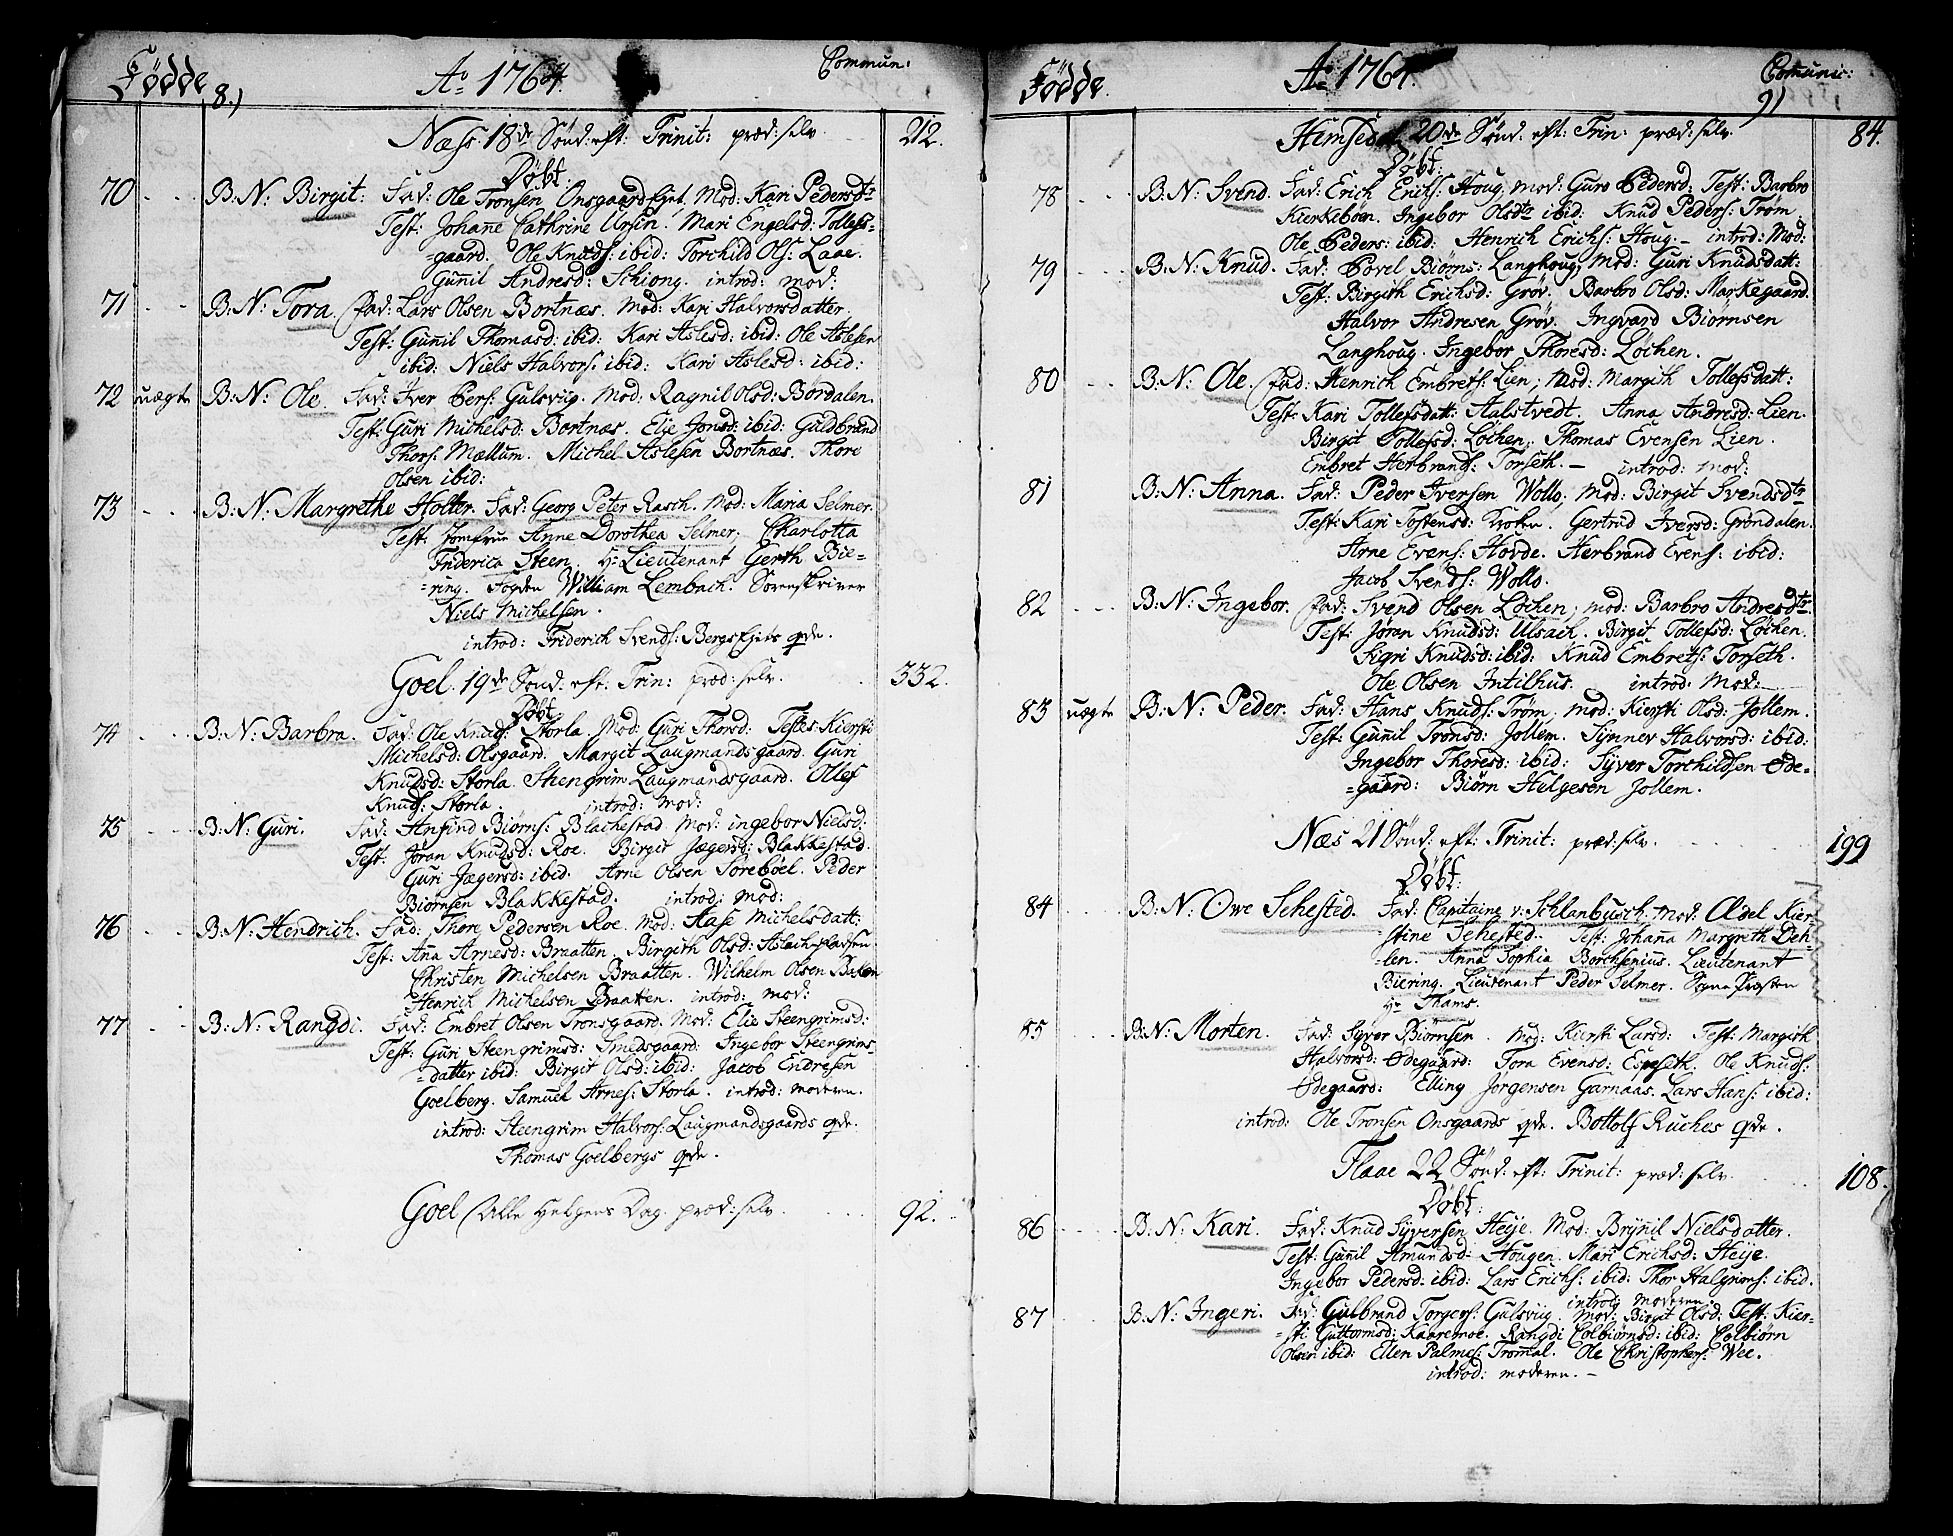 Fødde 8.) Ao 1764. Commun:
Næss. 18de Sønd: eft: Trinit: præd: selv 212.
Døbt:
70 B: N: Birgit: Fad: Ole Tronsen Onsgaard Ejet, Mod: Kari Pedersdtr
Test: Johañe Cathrine Ursin. Mari Engelsd: Tollefs=
=gaard. Ole Knuds: ibid: Torchild Ols: Laae.
Gunil Andresd: Schiong. introd: mod:
71 B: N: Tora. Fad: Lars Olsen Bortnæs. Mod: Kari Halvorsdatter.
Test: Gunil Thomasd: ibid: Kari Aslesd: ibid: Ole Aslesen
ibid: Niels Halvors: ibid: Kari Aslesd: ibid:
72 uægte B: N: Ole. Fad: Iver Pers: Gulsvig. Mod: Ragnil Olsd: Børdalen.
Test: Guri Michelsd: Bortnæs. Elie Jonsd: ibid: Guldbrand
Thors: Mællum. Michel Aslesen Bortnæs. Thore
Olsen ibid:
73 B: N: Margrethe Holter. Fad: Georg Peter Rasch. Mod: Maria Selmer.
Test: Jomfrue Anne Dorothea Selmer, Charlotta
Friderica Steen. Hr Lieutenant Gerth Bie=
=ring. Fogden William Lembach. Sorenskriver
Niels Michelsen.
introd: Friderich Svends: Bergs Ejets qde.
Goel. 19de Sønd: eft: Trin: præd: selv. 332.
Døbt
74 B: N: Barbra. Fad: Ole Knuds: Storla. Mod: Guri Thorsd: Testes: Kiersti
Michelsd: Olsgaard. Margit Laugmandsgaard. Guri
Knudsd: Storla. Steengrim Laugmandsgaard. Ollef
Knuds: Storla. introd: mod:
75 B: N: Guri. Fad: Ansind Biørns: Blachestad. Mod: ingebor Nielsd:
Test: Jøran Knudsd: Roe. Birgit Jægersd: Blakkestad.
Guri Jægersd: ibid: Arne Olsen Sørebøel. Peder
Biørnsen Blakkestad. introd: mod:
76 B: N: Hendrich. Fad: Thore Pedersen Roe. Mod: Aase Michelsdatt:
Test: Ana Arnesd: Braatten. Birgith Olsd: Aslachpladsen.
Christen Michelsen Braatten. Wilhelm Olsen Bakken
Henrich Michelsen Braatten. introd: mod:
77 B: N: Rangdi. Fad: Embret Olsen Tronsgaard. Mod: Elie Steengrimsd:
Test: Guri Steengrimsd: Smedsgaard: Ingebor Steengrims=
=datter ibid: Birgit Olsd: ibid: Jacob Endresen
Goelberg. Samuel Arnes: Storla. introd: moderen.
introd: Steengrim Halvors: Laugmandsgaards qde.
Thomas Goelbergs qde.
Goel Alle Helgens Dag. præd: selv. 92.
Fødde. Ao 1764. Comunic:
9)
Hemsedal 20de Sønd: eft: Trin: præd: selv 84.
Døbt:
78 B: N: Svend. Fad: Erich Erichs: Houg, mod: Guro Pedersd: Test: Barbro
Kierkebøen. Ingebor Olsdtr ibid: Knud Peders: Trøm.
Ole Peders: ibid: Henrich Erichs: Houg. – introd: Mod:
79 B: N: Knud. Fad: Povel Biørns: Langhoug, Mod: Guri Knudsdatt:
Test: Birgith Erichsd: Grøv. Barbro Olsd: Markegaard.
Halvor Andresen Grøv. Ingvard Biornsen
Langhoug. Ingebor Thoresd: Løchen.
80 B: N: Ole. Fad: Henrich Embrets: Lien, mod: Margith Tollefsdatt:
Test: Kari Tollefsdatt: Aalstvedt. Anna Andresd: Lien.
Birgit Tollefsd: Løchen, Thomas Evensen Lien.
Embret Herbrands: Torseth. – introd: mod:
81 B: N: Anna. Fad: Peder Iversen Wollo, mod: Birgit Svendsdtr
Test: Kari Tostensd: Kroken. Gertrud Iversd: Grøndalen.
Arne Evens: Hovde. Herbrand Evens: ibid:
Jacob Svends: Wollo.
82 B: N: Ingebor. Fad: Svend Olsen Løchen, mod: Barbro Andresdtr
Test: Jøran Knudsd: Ulsach. Birgit Tollefsd: Løchen.
Sigri Knudsd: ibid: Knud Embrets: Torseth.
Ole Olsen Intilhus. introd: Mod:
83 uægte B: N: Peder. Fad: Hans Knuds: Trøm, mod: Kiersti Olsd: Jollem.
Test: Gunil Tronsd: Jollem. Synnev Halvorsd: ibid:
Ingebor Thoresd: ibid: Syver Torchildsen Øde=
=gaard: Biørn Helgesen Jollem.
Næs 21 Sønd: eft: Trinit: præd: selv. 199
Døbt:
84 B: N: Owe Sehested. Fad: Capitaine v: Schlanbusch. Mod: Ædel Kier=
=stine Sehested. Test: Johana Margreth Deh=
=len. Anna Sophia Borchsenius. Lieutenant
Biering. Lieutenant Peder Selmer. Sogne Præsten
Hr Thams.
85 B: N: Morten. Fad: Syver Biørnsen. Mod: Kiersti Larsd: Test: Margith
Halvorsd: Ødegaard: Tora Evensd: Espeseth. Ole Knuds:
Ødegaard: Elling Jørgensen Garnaas. Lars Hans: ibid:
introd: Ole Tronsen Onsgaards qde. Bottolf Ruches qde.
Flaae 22 Sønd: eft: Trinit: præd: selv. 108.
Døbt:
86 B: N: Kari. Fad: Knud Syversen Heije. Mod: Brynil Nielsdatter.
Test: Gunil Amundsd: Hougen. Mari Erichsd: Heije.
Ingebor Pedersd: ibid: Lars Erichs: ibid: Thor Halgrims: ibid.
introd: moderen.
87 B: N: Ingeri. Fad: Gulbrand Torgers: Gulsviig. Mod: Birgit Olsd: Test: Kier=
=sti Guttormsd: Kaaremoe. Rangdi Colbiørnsd: ibid: Colbiørn
Olsen ibid: Ellen Palmes: Trommal. Ole Christophers: Wee.
introd: moderen. –